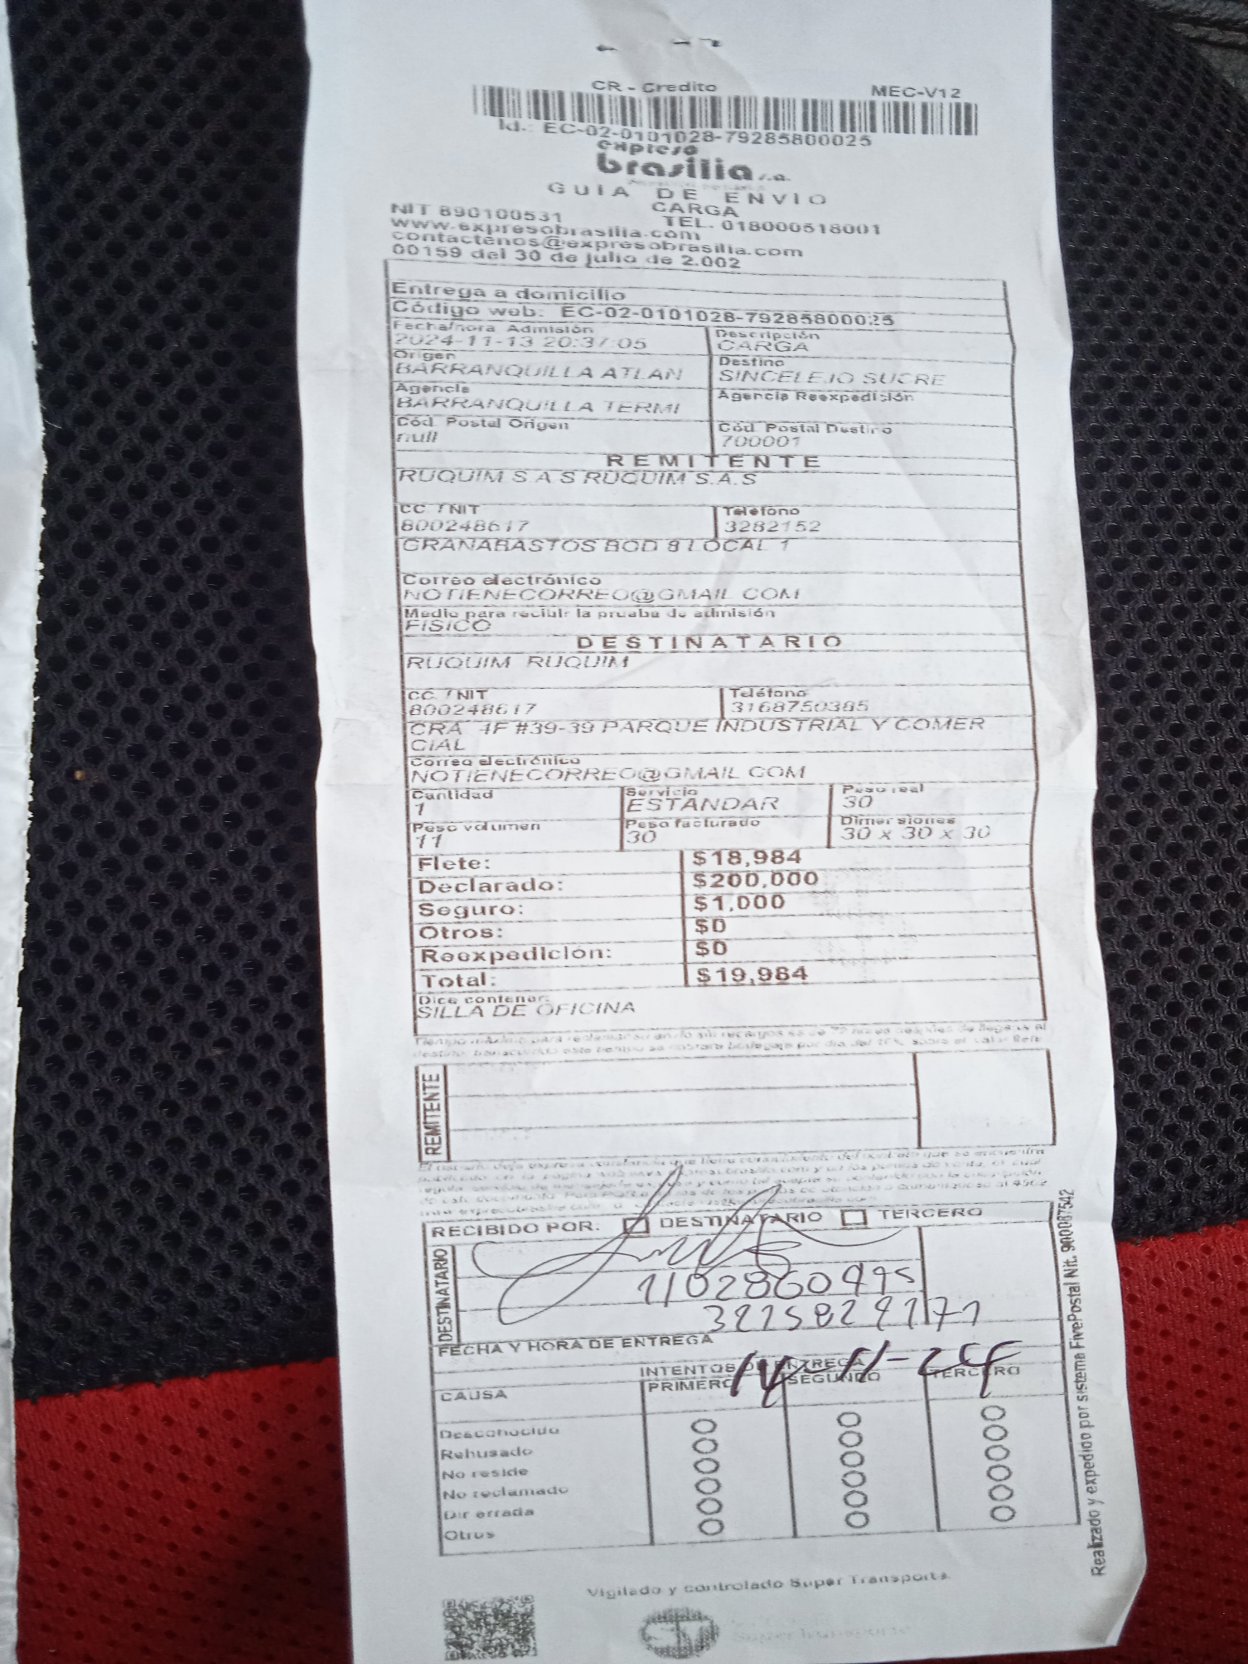 CR - Credito MEC-V12
Id.: EC-02-0101028-79285800025
expreso
brasilia s.a.
GUIA DE ENVIO
CARGA
NIT 890100531 TEL. 018000518001
www.expresobrasilia.com
contactenos@expresobrasilia.com
00159 del 30 de julio de 2.002
Entrega a domicilio
Código web: EC-02-0101028-79285800025
Fecha/hora Admisión Descripción
2024-11-13 20:37:05 CARGA
Origen Destino
BARRANQUILLA ATLAN SINCELEJO SUCRE
Agencia Agencia Reexpedición
BARRANQUILLA TERMI
Cód. Postal Origen Cód. Postal Destino
null 700001
REMITENTE
RUQUIM S A S RUQUIM S.A.S
CC / NIT Teléfono
800248617 3282152
GRANABASTOS BOD 8 LOCAL 1
Correo electrónico
NOTIENECORREO@GMAIL COM
Medio para recibir la prueba de admisión
FISICO
DESTINATARIO
RUQUIM RUQUIM
CC / NIT Teléfono
800248617 3168750385
CRA 4F #39-39 PARQUE INDUSTRIAL Y COMER
CIAL
Correo electrónico
NOTIENECORREO@GMAIL COM
Cantidad Servicio Peso real
1 ESTANDAR 30
Peso volumen Peso facturado Dimensiones
11 30 30 x 30 x 30
Flete: $18,984
Declarado: $200,000
Seguro: $1,000
Otros: $0
Reexpedición: $0
Total: $19,984
Dice contener:
SILLA DE OFICINA
REMITENTE
RECIBIDO POR: DESTINATARIO TERCERO
DESTINATARIO
1102860495
FECHA Y HORA DE ENTREGA
14-11-24
INTENTOS DE ENTREGA
CAUSA PRIMERO SEGUNDO TERCERO
Desconocido
Rehusado
No reside
No reclamado
Dir errada
Otros
Realizado y expedido por sistema FivePostal Nit. 900087542
Vigilado y controlado Super Transporte